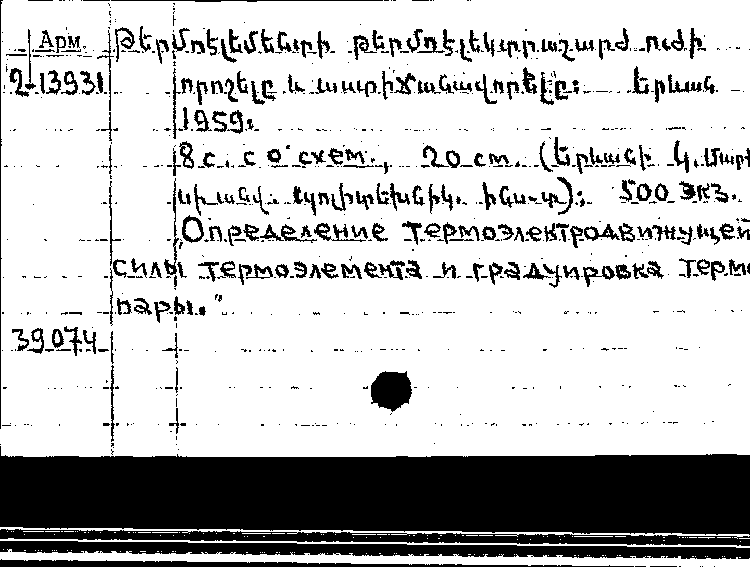 Арм. Թերմոէլեմենտի թերմոէլեկտրաշարժ ուժի
2-13931 որոշելը և աստիճանավորելը: Երևան
1959.
8 с. с о схем., 20 cm. (Երևանի Կ. Մարք
սի անվ. պոլիտեխնիկ. ինս-տ); 500 экз.
„Определение термоэлектродвижущей
силы термоэлемента и градуировка термо
пары."
39074